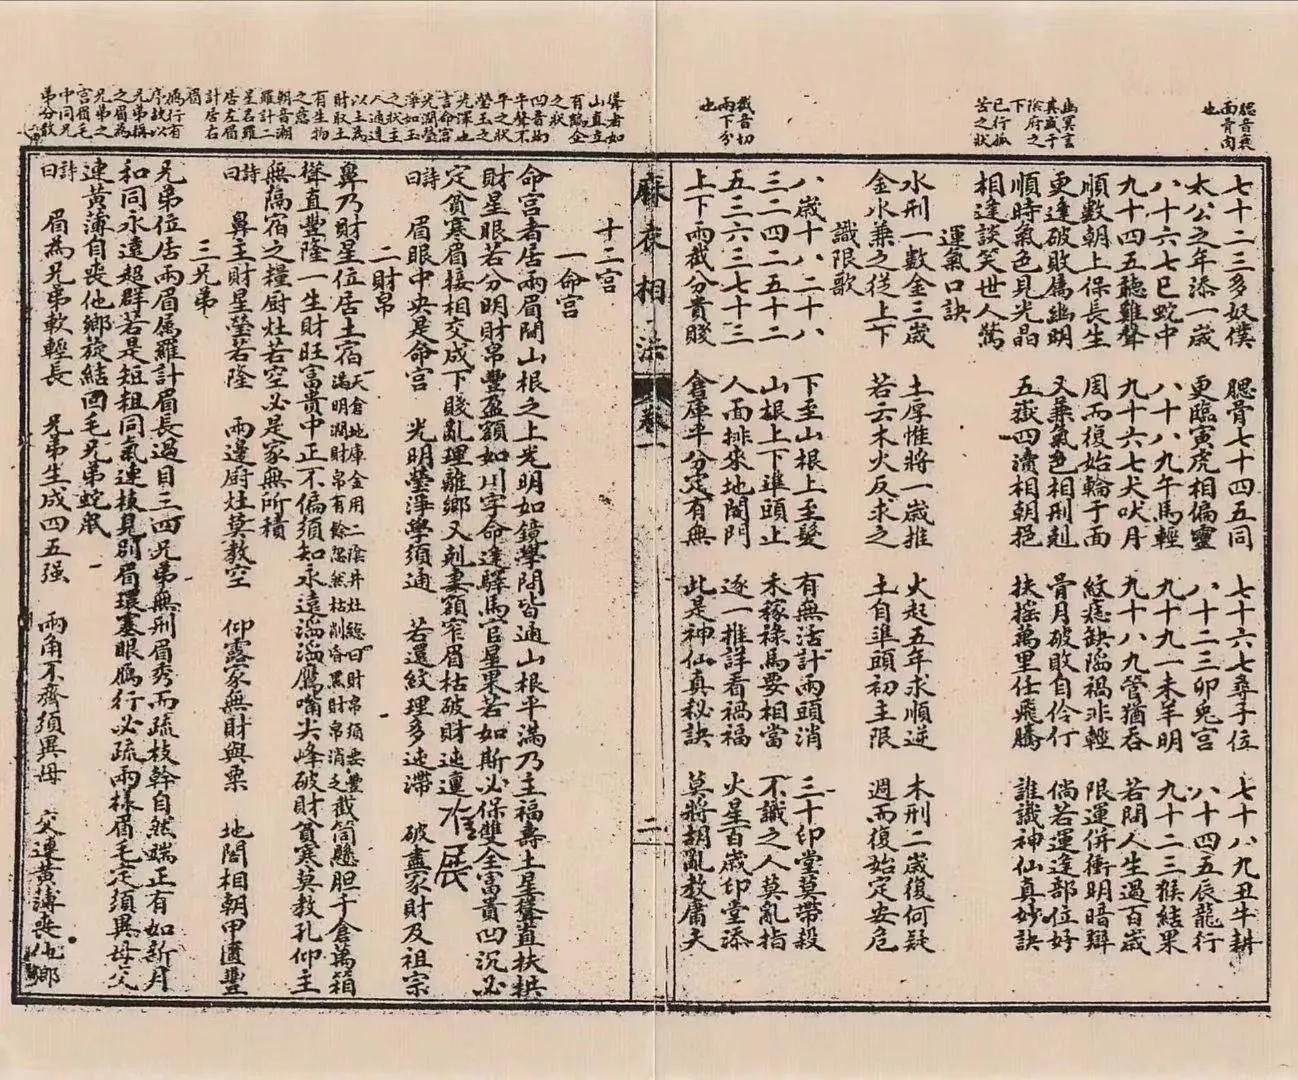 腮音衰
面骨肉
也
幽冥言
真或于
陰府之
下
已行孤
苦之狀
截音切
兩下分
也
七十二三多奴僕　腮骨七十四五同　七十六七尋子位　七十八九丑牛耕
太公之年添一歲　更臨寅虎相偏靈　八十二三卯兔宮　八十四五辰龍行
八十六七巳蛇中　八十八九午馬輕　九十九一未羊明　九十二三猴結果
九十四五聽雞聲　九十六七犬吠月　九十八九管猶吞　若問人生過百歲
順數朝上保長生　周而復始輪于面　紋痣缺陷禍非輕　限運併衝明暗辯
更逢破敗屬幽明　又兼氣色相刑剋　骨月破敗自伶仃　倘若運逢部位好
順時氣色見光晶　五嶽四瀆相朝挹　扶搖萬里任飛騰　誰識神仙真妙訣
相逢談笑世人驚
運氣口訣
水刑一數金三歲　土厚惟將一歲推　火起五年求順逆　木刑二歲復何疑
金水兼之從上下　若云木火反求之　土自準頭初主限　週而復始定安危
識限歌
八歲十八二十八　下至山根上至髮　有無活計兩頭消　三十印堂莫帶殺
三二四二五十二　山根上下準頭止　禾稼祿馬要相當　不識之人莫亂指
五三六三七十三　人面排來地閣門　逐一推詳看禍福　火星百歲印堂添
上下兩截分貴賤　倉庫平分定有無　此是神仙真秘訣　莫將胡亂教庸夫
麻衣相法　卷一　二
聳者如
山直立
有臨企
之狀
凹音坳
平聲不
平之狀
瑩玉之
光澤也
言命宮
光潤瑩
淨如玉
之狀主
人通達
以土為
財取土
有生物
之意
朝音潮
羅計二
星名羅
居左眉
計居右
眉
鴈行有
序故以
兄弟稱
之眉為
兄弟之
宮眉毛
中同兄
弟分數
十二宮
一命宮
命宮者居兩眉間山根之上光明如鏡學問皆通山根平滿乃主福壽土星聳直扶拱
財星眼若分明財帛豐盈額如川字命逢驛馬官星果若如斯必保雙全富貴凹沉必
定貧寒眉接相交成下賤亂理離鄉又剋妻額窄眉枯破財迍邅
詩曰　眉眼中央是命宮　光明瑩淨學須通　若還紋理多迍滯　破盡家財及祖宗
二財帛
鼻乃財星位居土宿天倉地庫金甲二陰井灶總曰財帛須要豐滿明潤財帛有餘忽然枯削昏黑財帛消乏截筒懸胆千倉萬箱
聳直豐隆一生財旺富貴中正不偏須知永遠滔滔鷹嘴尖峰破財貧寒莫教孔仰主
無隔宿之糧厨灶若空必是家無所積
詩曰　鼻主財星瑩若隆　兩邊厨灶莫教空　仰露家無財與粟　地閣相朝甲匱豐
三兄弟
兄弟位居兩眉屬羅計眉長過目三四兄弟無刑眉秀而疏枝幹自然端正有如新月
和同永遠超群若是短粗同氣連枝見別眉環塞眼鴈行必疏兩樣眉毛定須異母交
連黃薄自喪他鄉旋結回毛兄弟蛇鼠
詩曰　眉為兄弟軟輕長　兄弟生成四五强　兩角不齊須異母　交連黃薄喪他鄉